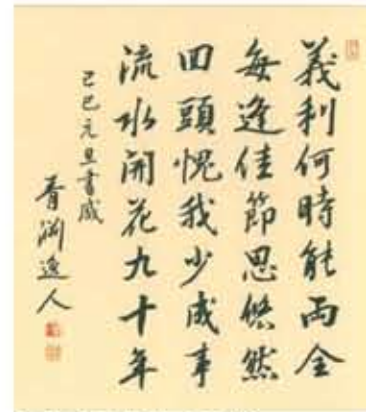 義利何時能兩全
每逢佳節思悠然
回頭愧我少成事
流水開花九十年
己巳元旦書感
青淵逸人